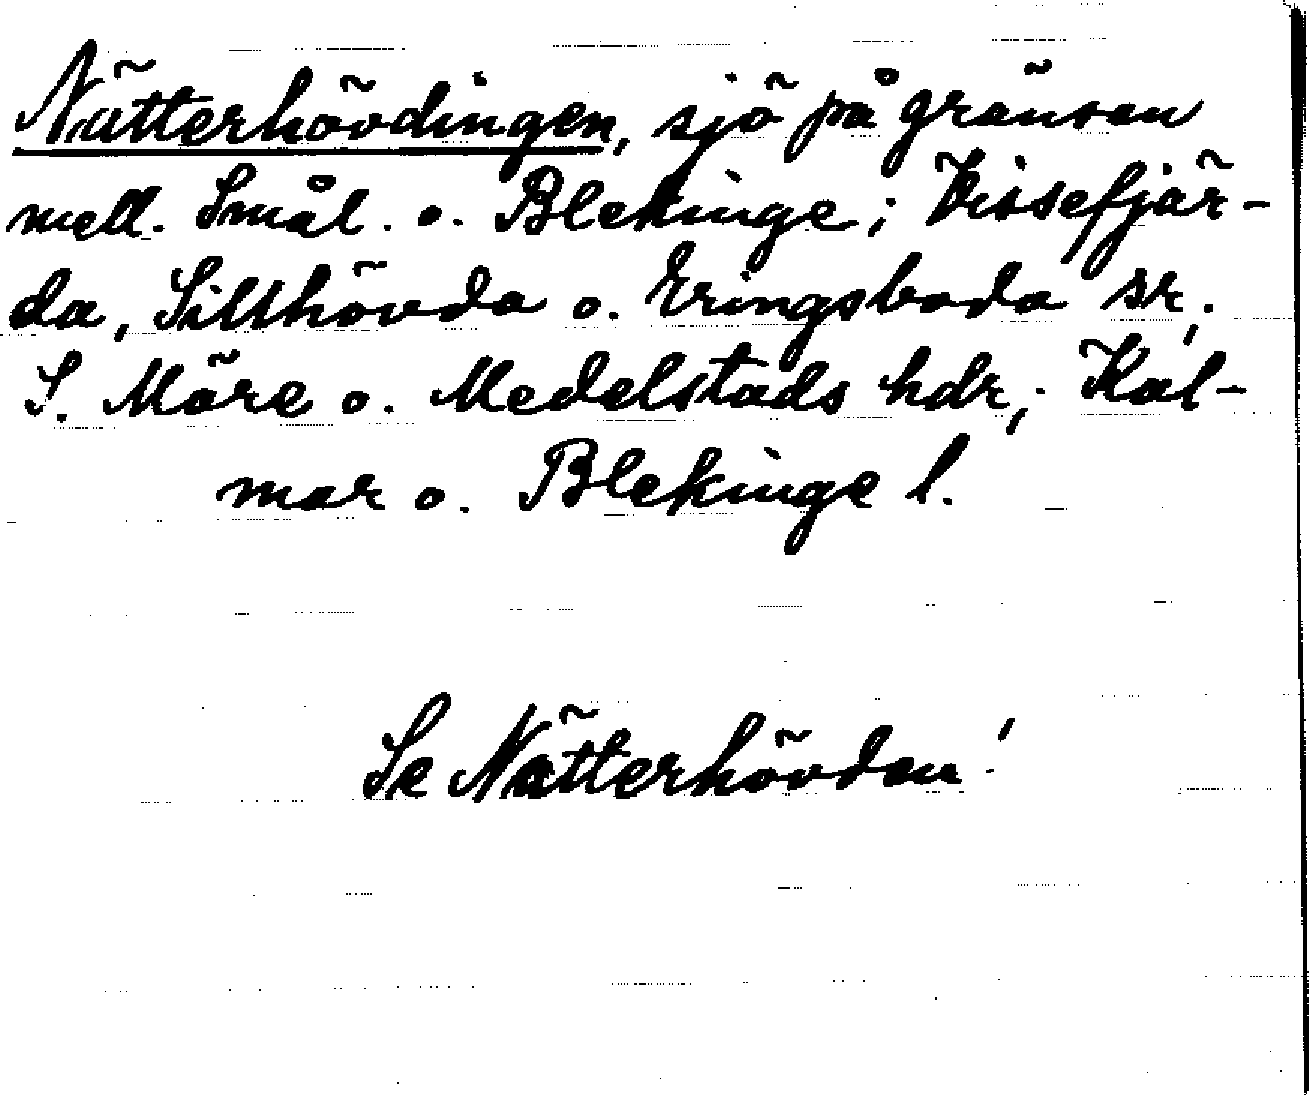 Nätterhövdingen, sjö på gränsen
mell. Smål. o. Blekinge; Vissefjär-
da, Sillhövda o. Eringsboda sr,
S. Möre o. Medelstads hdr, Kal-
mar o. Blekinge l.
Se Nätterhövden!